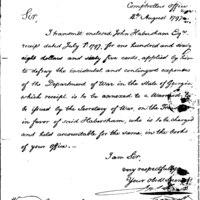 Comptrollers Office
12th August 1797
Sir,
I transmit enclosed John Habersham Esqr
receipt dated July 1797, for one hundred and sixty
eight dollars and sixty five cents, applied by him
to defray the incidental and contingent expences
of the Department of War in the State of Georgia
which receipt is to be annexed to a Warrant
to issued by the Secretary of War, on the
in favor of said Habersham, who is to be charged
and held accountable for the same, in the books
of your Office.
I am Sir
very respectfully
Your obed